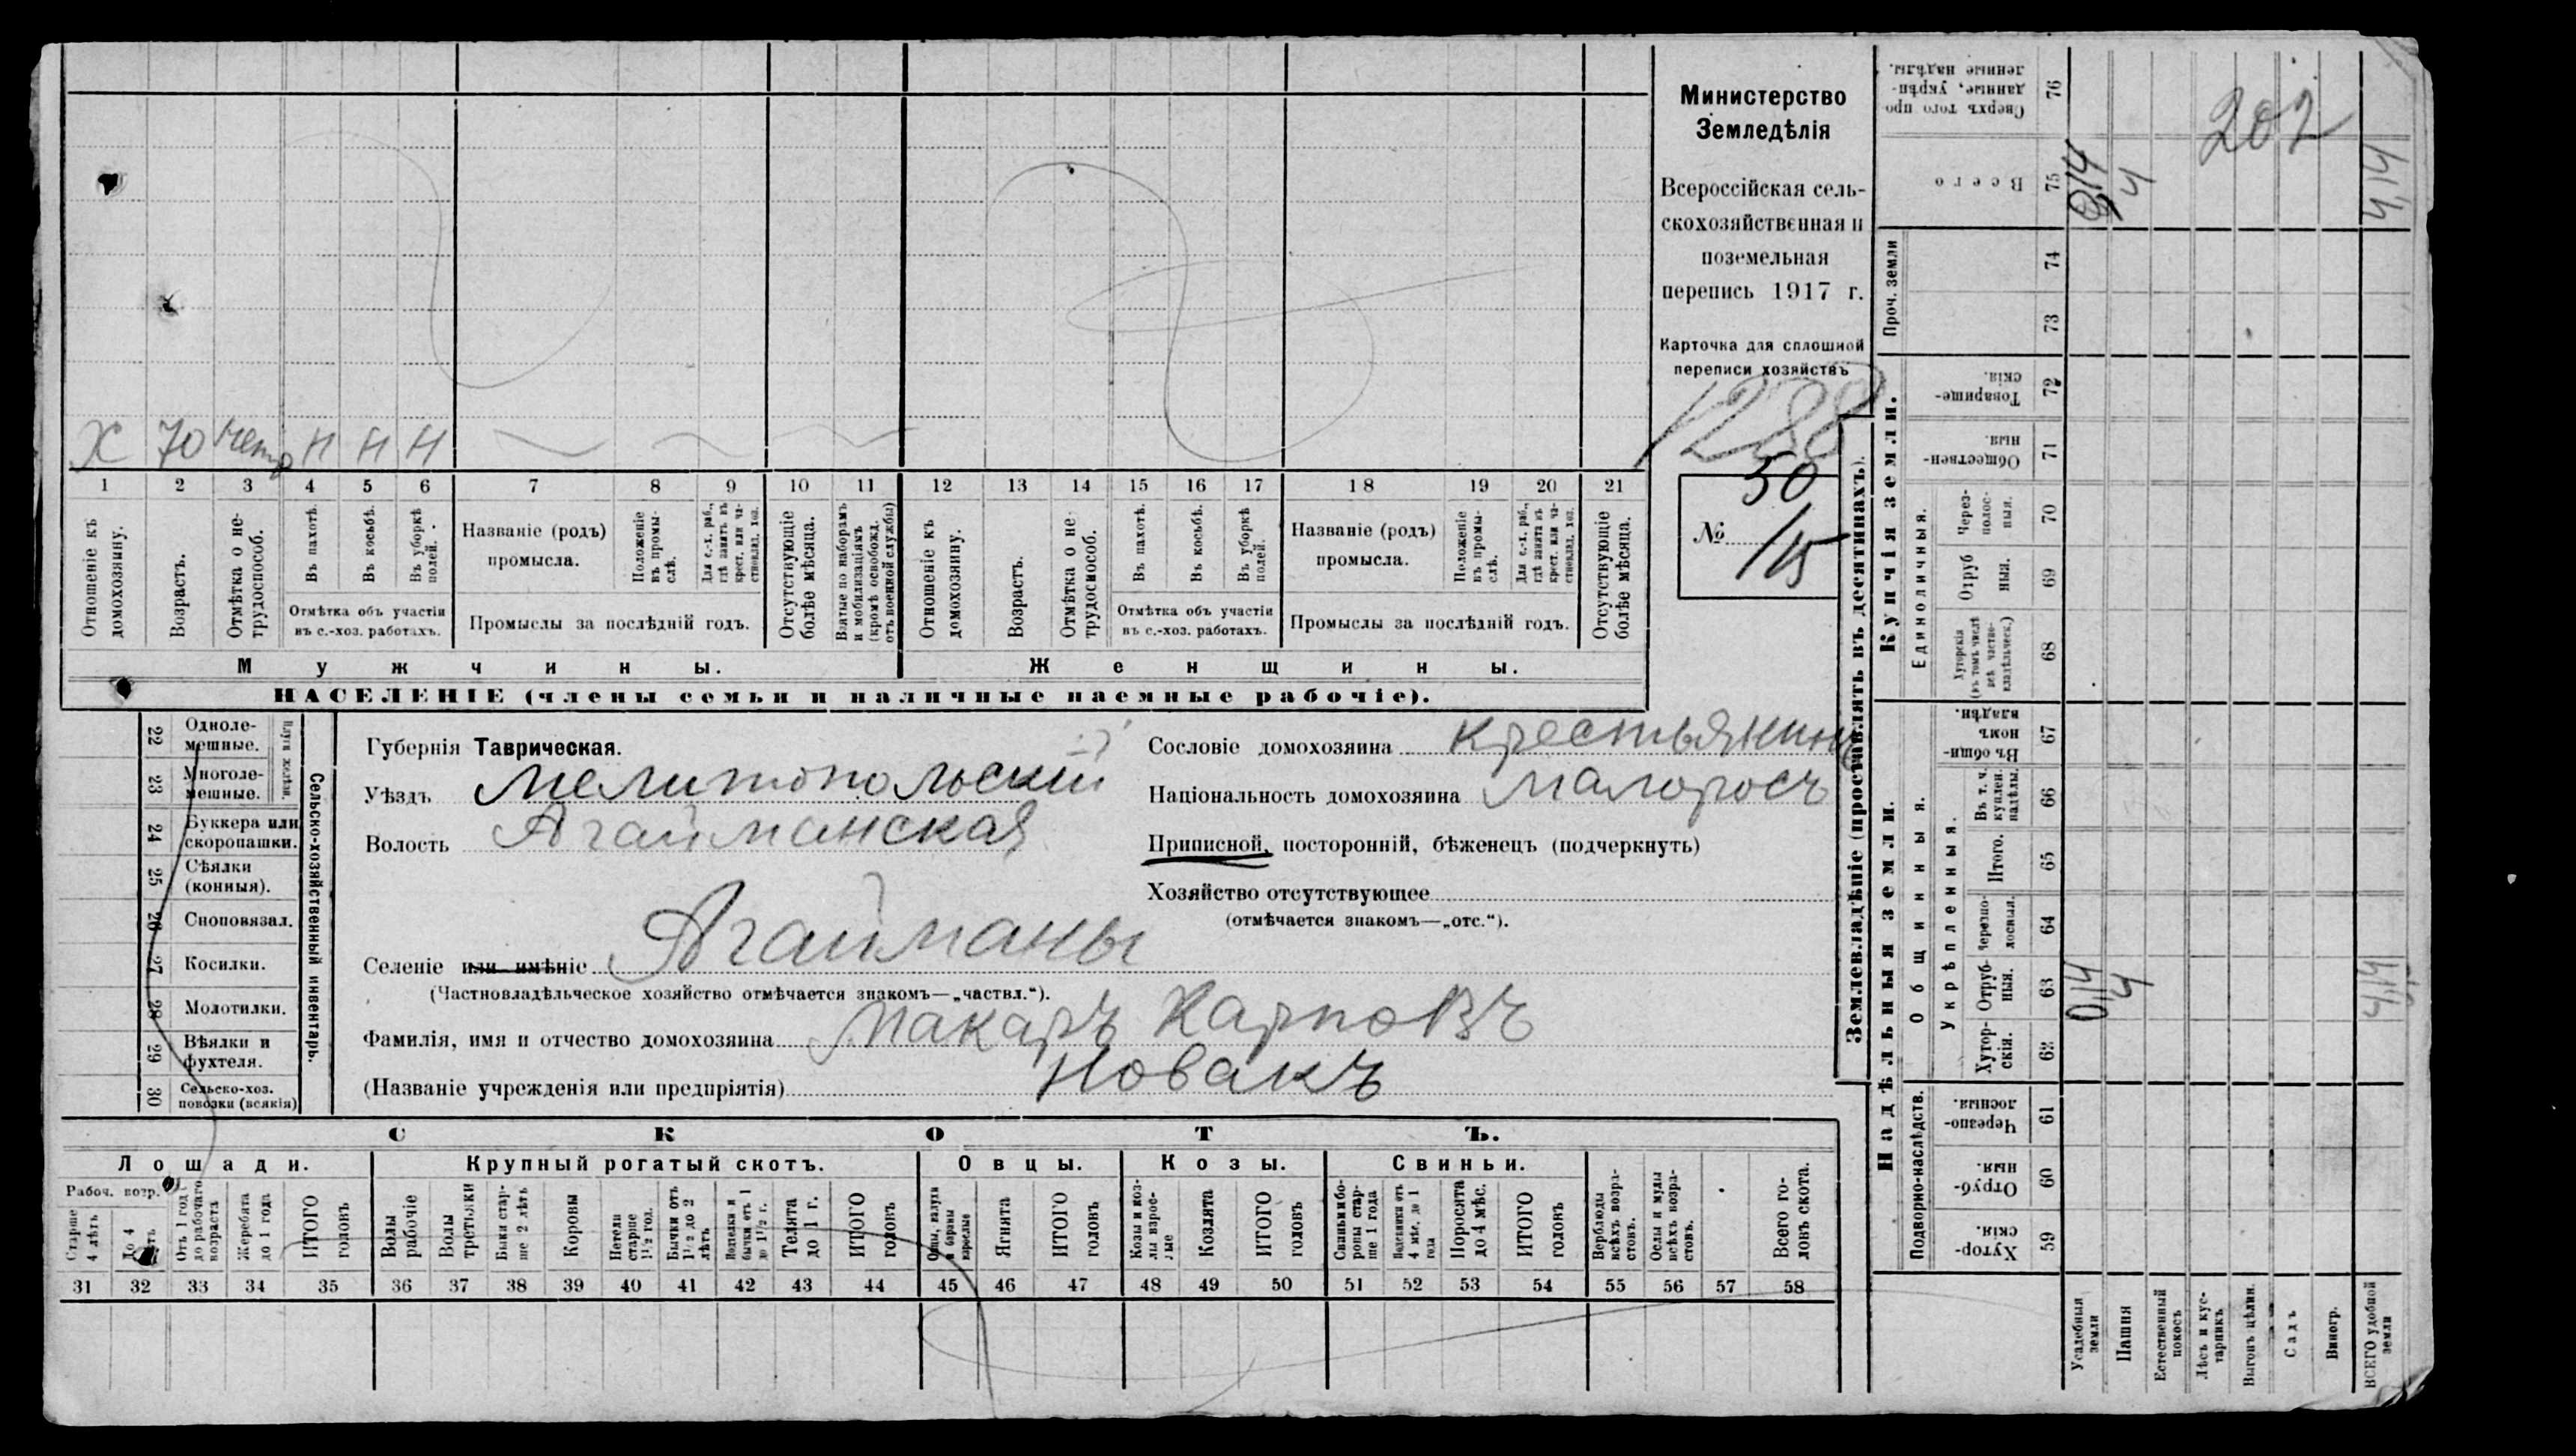 Министерство
Земледѣлія
Всероссійская сель-
скохозяйственная и
поземельная
перепись 1917 г.
Карточка для сплошной
переписи хозяйствъ
1288
№ 50
115
202
Х 70 Н Н Н
1 2 3 4 5 6 7 8 9 10 11 12 13 14 15 16 17 18 19 20 21
Отношеніе къ домохозяину.
Возрастъ.
Отмѣтка о не-трудоспособ.
Въ пахотѣ.
Въ косьбѣ.
Въ уборкѣ полей.
Отмѣтка объ участіи
въ с.-хоз. работахъ.
Названіе (родъ)
промысла.
Положеніе въ промы-слѣ.
Для с.-х. раб., гдѣ занятъ въ крест. или ча-стновлад. хоз.
Промыслы за послѣдній годъ.
Отсутствующіе болѣе мѣсяца.
Взятые по наборамъ и мобилизаціямъ (кромѣ освобожд. отъ военной службы)
Отношеніе къ домохозяину.
Возрастъ.
Отмѣтка о не-трудоспособ.
Въ пахотѣ.
Въ косьбѣ.
Въ уборкѣ полей.
Отмѣтка объ участіи
въ с.-хоз. работахъ.
Названіе (родъ)
промысла.
Положеніе въ промы-слѣ.
Для с.-х. раб., гдѣ занята въ крест. или ча-стновлад. хоз.
Промыслы за послѣдній годъ.
Отсутствующіе болѣе мѣсяца.
Мужчины. Женщины.
НАСЕЛЕНІЕ (члены семьи и наличные наемные рабочіе).
Сельско-хозяйственный инвентарь.
Плуги желѣзн.
22 Одноле-мешные.
23 Многоле-мешные.
24 Буккера или скоропашки.
25 Сѣялки (конныя).
26 Сноповязал.
27 Косилки.
28 Молотилки.
29 Вѣялки и фухтеля.
30 Сельско-хоз. повозки (всякія)
Губернія Таврическая.
Уѣздъ Мелитопольскій
Волость Агайманская
Селеніе или имѣніе Агайманы
(Частновладѣльческое хозяйство отмѣчается знакомъ—„частвл.“).
Фамилія, имя и отчество домохозяина Макаръ Карповъ
(Названіе учрежденія или предпріятія) Новакъ
Сословіе домохозяина крестьянинъ
Національность домохозяина малоросъ
Приписной, посторонній, бѣженецъ (подчеркнуть)
Хозяйство отсутствующее
(отмѣчается знакомъ—„отс.“).
СКОТЪ.
Лошади. Крупный рогатый скотъ. Овцы. Козы. Свиньи.
Рабоч. возр.
Старше 4 лѣтъ
До 4 лѣтъ
Отъ 1 год. до рабочаго возраста
Жеребята до 1 года
ИТОГО головъ
Волы рабочіе
Волы третьяки
Быки стар-ше 2 лѣтъ
Коровы
Нетели старше 1½ год.
Бычки отъ 1½ до 2 лѣтъ
Телята до 1 г.
ИТОГО головъ
Ягнята
ИТОГО головъ
Козы и коз-лы взрос-лые
Козлята
ИТОГО головъ
Свиньи и бо-ровы стар-ше 1 года
Подсвинки отъ 4 мѣс. до 1 года
Поросята до 4 мѣс.
ИТОГО головъ
Верблюды всѣхъ возра-стовъ.
Ослы и мулы всѣхъ возра-стовъ.
Всего го-ловъ скота.
31 32 33 34 35 36 37 38 39 40 41 42 43 44 45 46 47 48 49 50 51 52 53 54 55 56 57 58
Землевладѣніе (проставлять въ десятинахъ).
Надѣльныя земли.
Подворно-наслѣдств.
Хутор-скія. 59
Отруб-ныя. 60
Черезпо-лосныя. 61
Общинныя.
Укрѣпленныя.
Хутор-скія. 62
Отруб-ныя. 63
Черезпо-лосныя. 64
Итого. 65
Въ т. ч. куплен. надѣлы. 66
Въ общи-номъ владѣн. 67
Купчія земли.
Единоличныя.
Хуторскія (въ томъ числѣ всѣ частно-владѣльческ.) 68
Отруб ныя. 69
Через-полос-ныя. 70
Обществен-ныя. 71
Товарище-скія. 72
Проч. земли
73
74
Всего 75
Сверхъ того про данные, укрѣп-ленные надѣлы. 76
Усадебныя земли
Пашня
Естественный покосъ
Лѣсъ и кус-тарникъ
Выгонъ цѣлин.
Садъ
Виногр.
ВСЕГО удобной земли
4
4,14
4
4,14